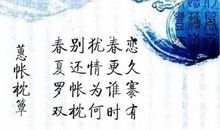 蕙帐枕簟
春别犹春恋
夏还情更久
罗帐为谁褰
双枕何时有